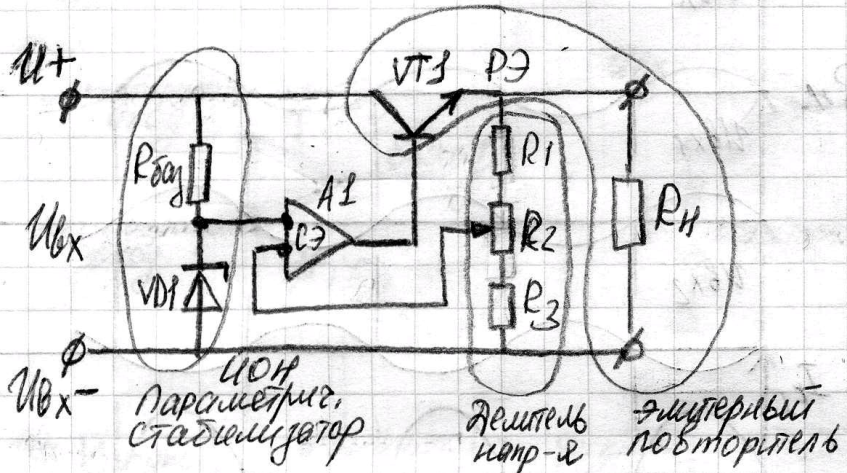 U+
VT1 РЭ
Rбал
A1
R1
Uвх
СЭ
R2
RН
VD1
R3
Uвх-
ИОН
Параметрич.
стабилизатор
Делитель
напр-я
Эмитерный
повторитель